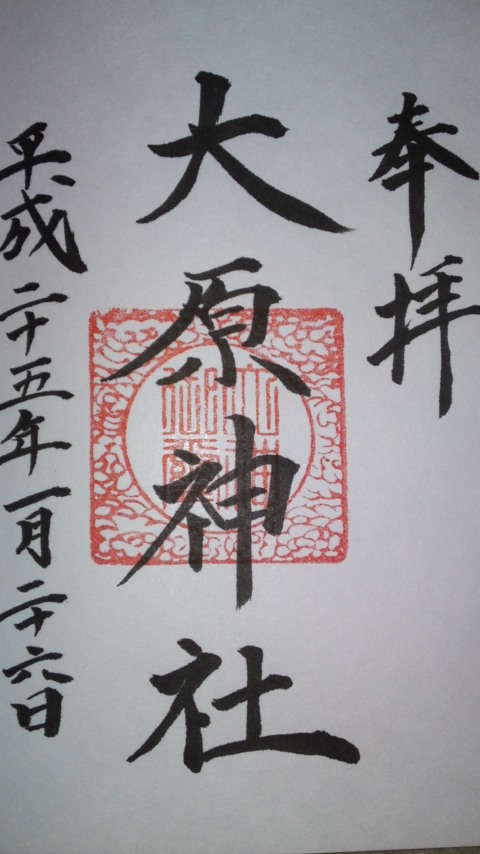 奉拝
大原神社
平成二十五年一月二十六日